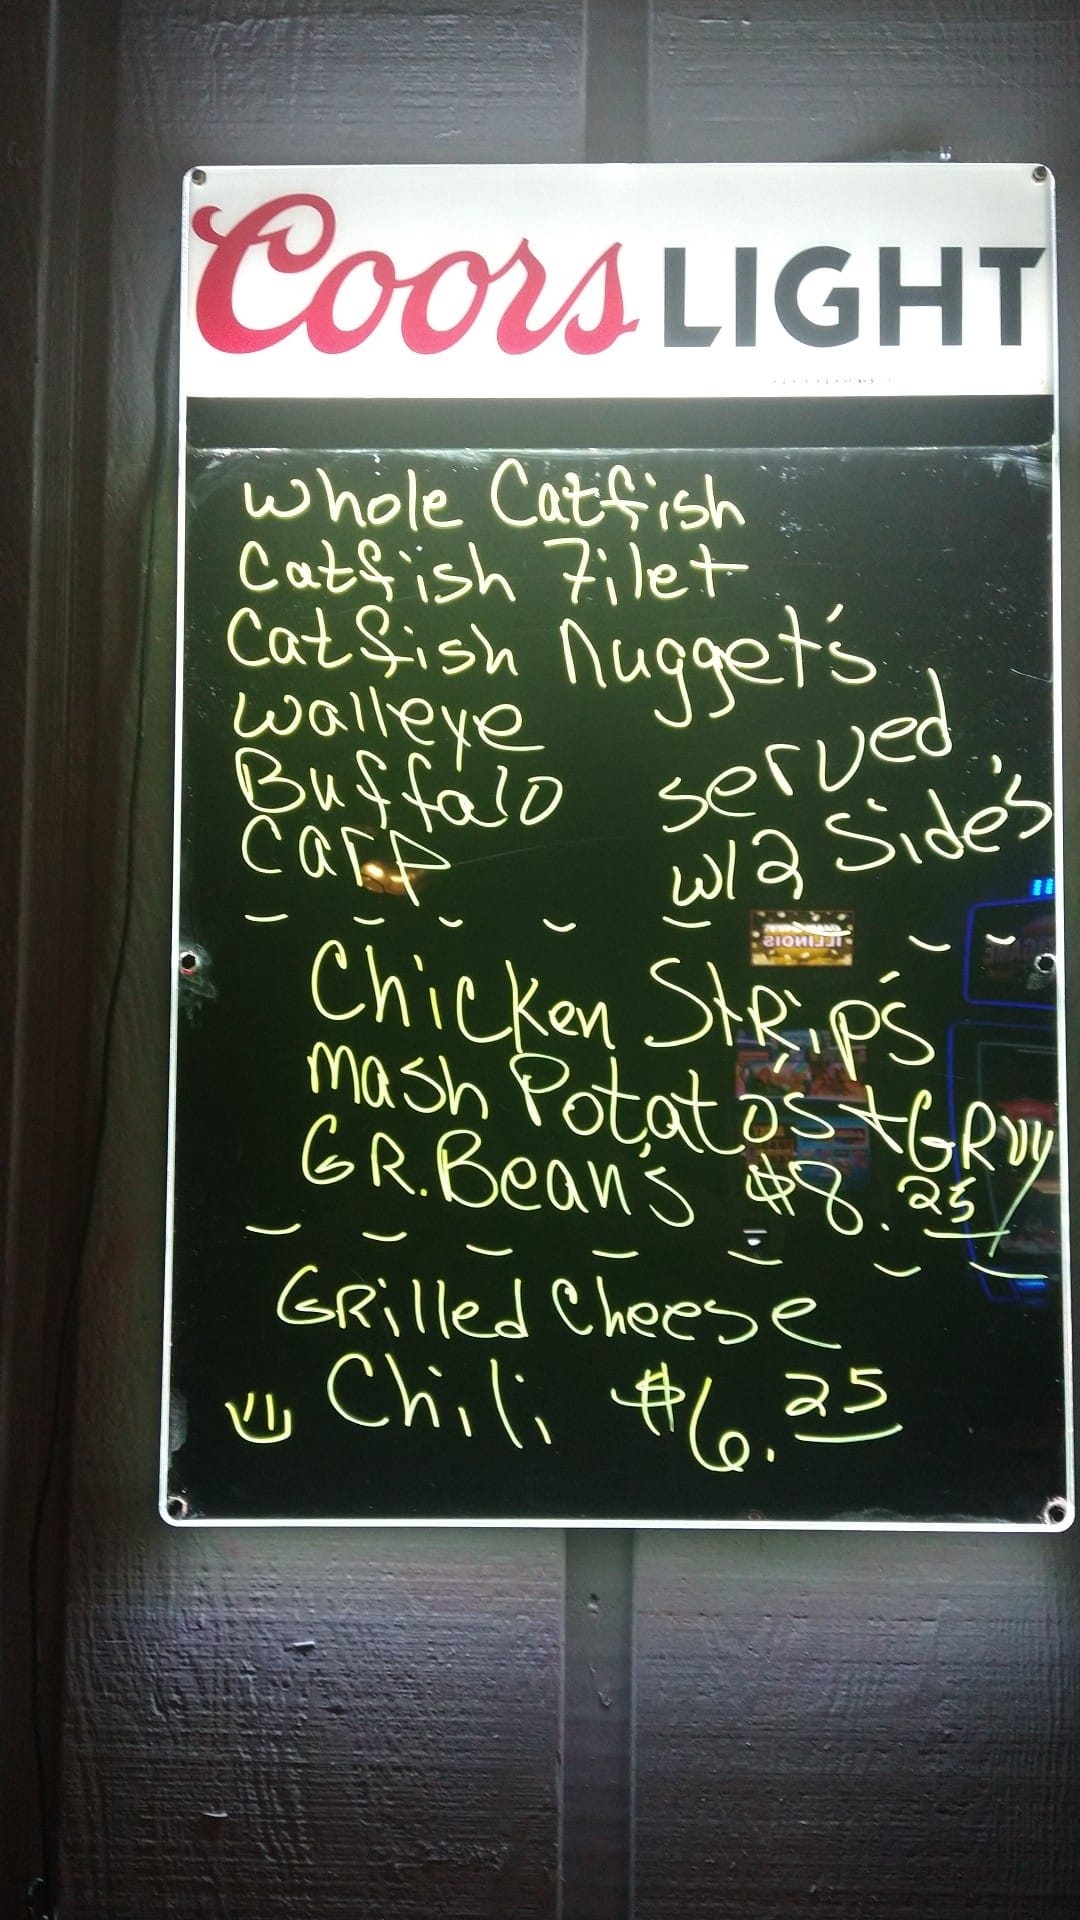 Coors LIGHT
Whole Catfish
Catfish Filet
Catfish Nugget's
Walleye
Buffalo
Carp
served
w/2 Side's
Chicken Strip's
Mash Potato's + GRVY
GR. Bean's $8.25
Grilled Cheese
Chili $6.25
ILLINOIS